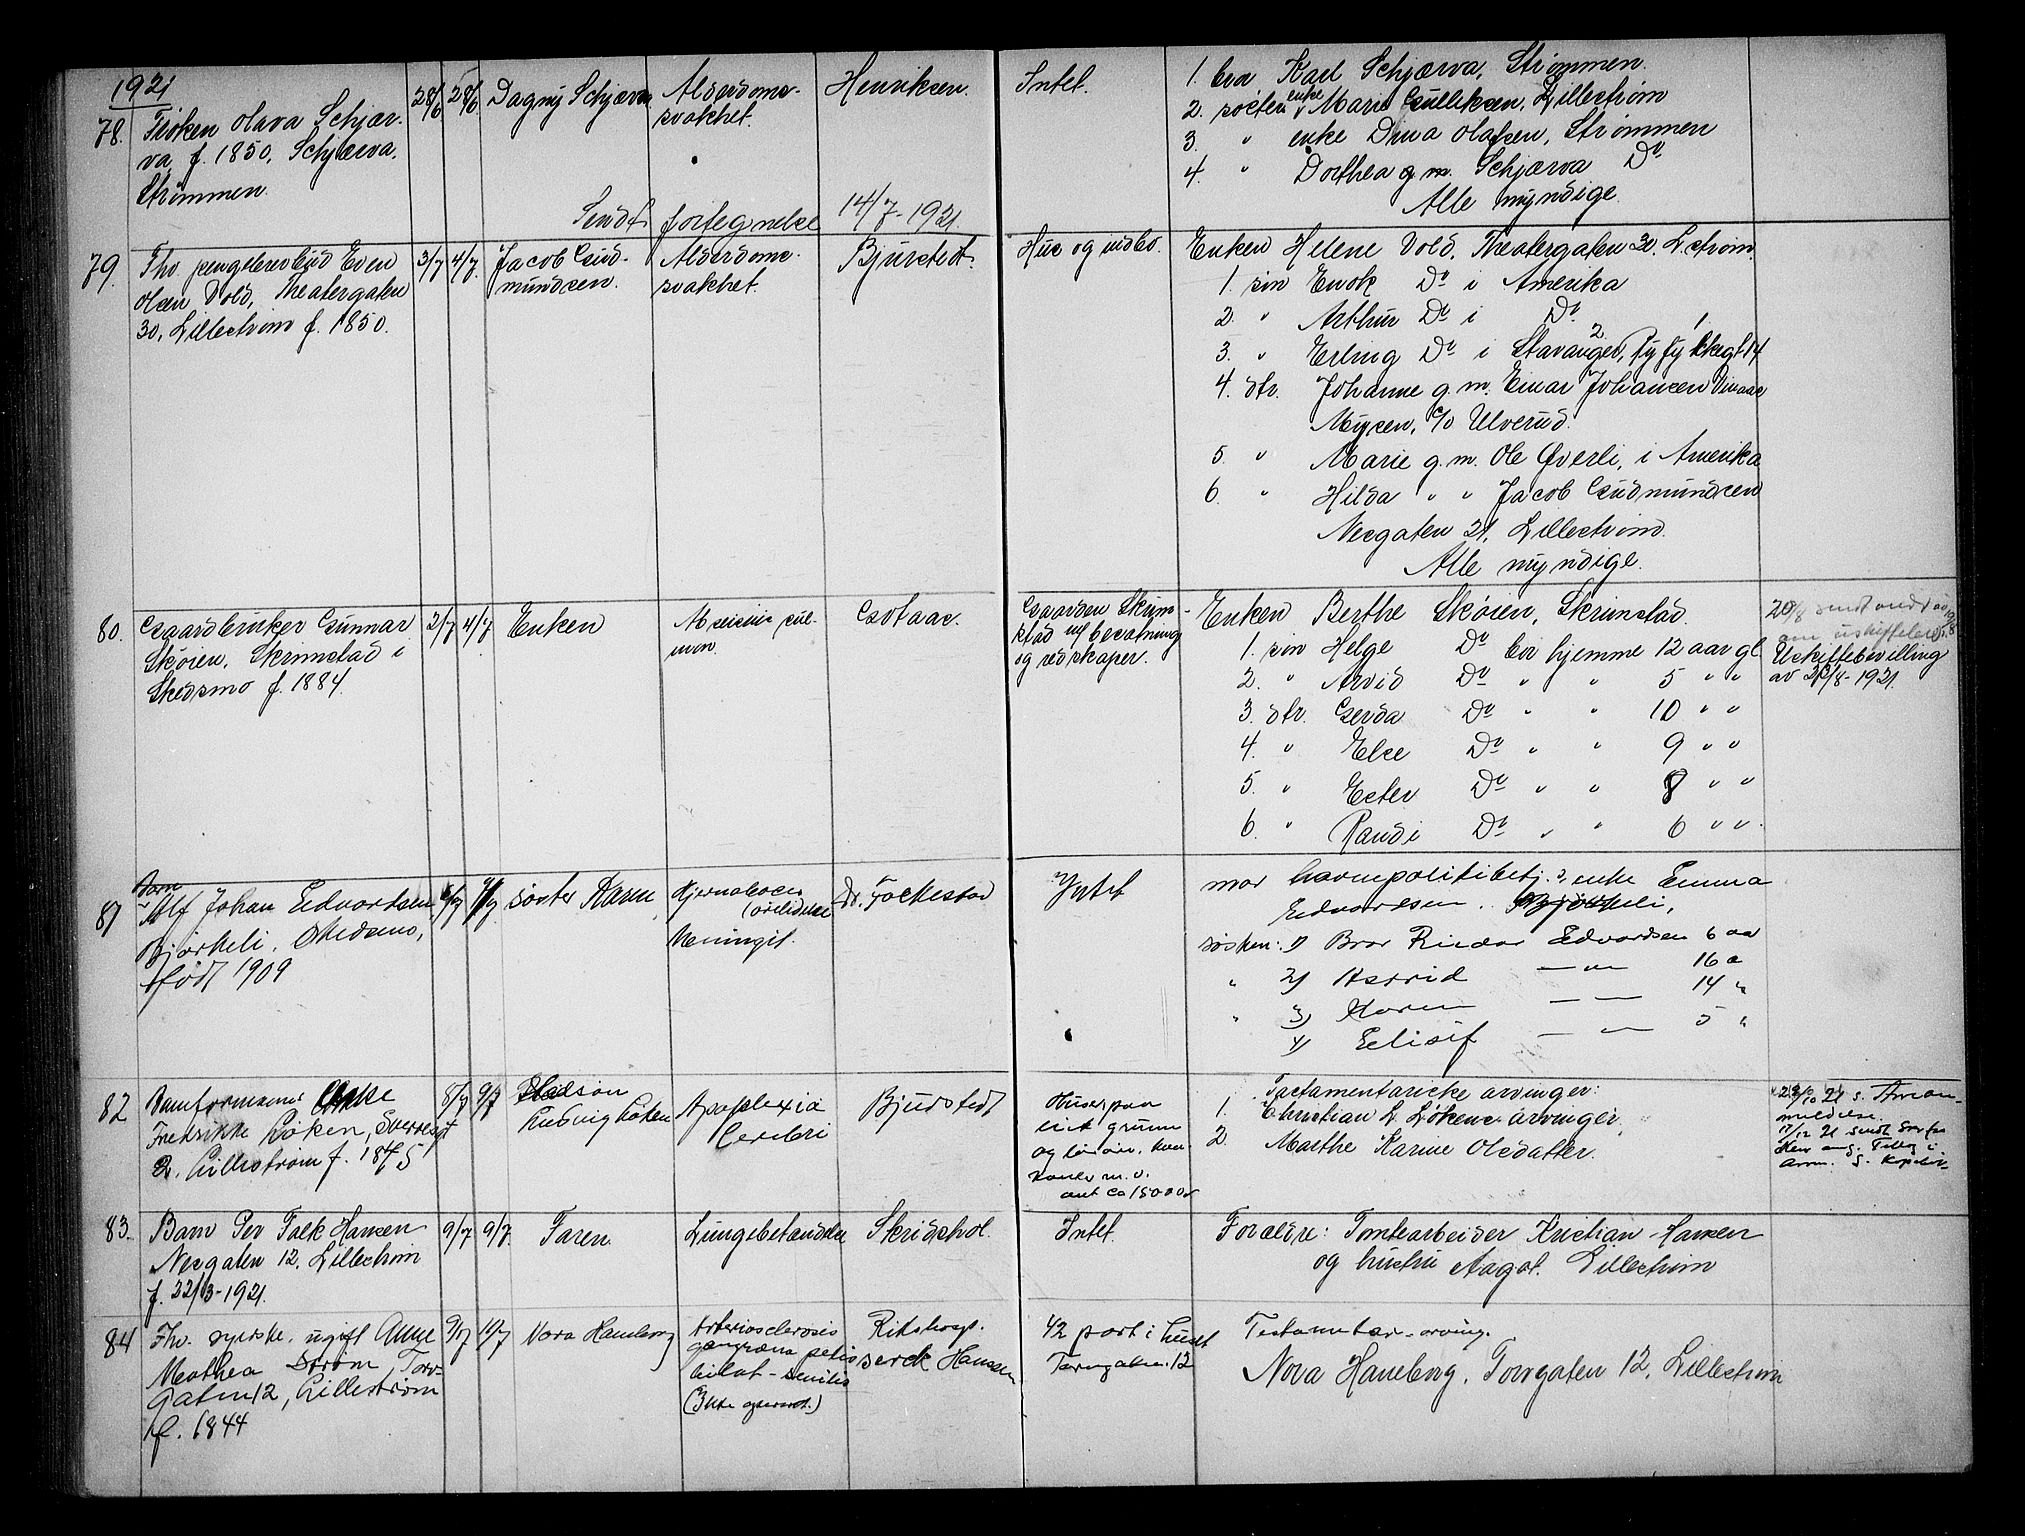 1921
78. Frøken Olava Schjær-
va f. 1850, Schjærva,
Strømmen.
28/6 28/6 Dagny Schjærva
Alderdoms-
svakhet.
Henriksen.
Sendt fortegnelse 14/7-1921.
Intet.
1. bror Karl Schjærva, Strømmen.
2. søster enke Marie Gulliksen, Lillestrøm
3. " enke Dina Olafsen, Strømmen
4. " Dorthea g.m. Schjærva Do
Alle myndige.
79. Fhv. pengebrevbud Even
Olsen Vold, Theatergaten
30, Lillestrøm f. 1850.
3/7 4/7 Jacob Gud-
mundsen.
Alderdoms-
svakhet.
Bjurstedt.
Hus og indbo.
Enken Helene Vold, Theatergaten 30, L.strøm.
1. søn Enok Do i Amerika
2. " Arthur Do i Do
3. " Erling Do i Stavanger,
4. dtr. Johanne g.m. Einar Johansen
Mysen, c/o Ulverud.
5. " Marie g.m. Ole Øverli, i Amerika
6. " Hilda " " Jacob Gudmundsen
Nesgaten 21, Lillestrøm.
Alle myndige.
80. Gaardbruker Gunnar
Skøien, Skrimstad i
Skedsmo f. 1884.
2/7 4/7 Enken
pul-
mon.
Gotaas.
Gaarden Skrim-
stad m/ besætning
og redskaper.
Enken Berthe Skøien, Skrimstad.
1. søn Helge Do bor hjemme 12 aar gl.
2. " Arvid Do " " 5 " "
3. dtr. Gerda Do " " 10 " "
4. " Else Do " " 9 " "
5. " Ester Do " " 8 " "
6. " Randi Do " " 6 " "
Uskiftebevilling
av 22/8-1921.
81 Barn
Alf Johan Edvardsen
Bjørkeli, Skedsmo,
født 1909
6/7 7/7 søster Karen
Hjerneabces
(ørelidelse
Meningit.
Dr. Fockestad
Intet
mor havnepolitibetj.s enke Emma
Edvardsen. Bjørkeli,
søsken: 1) Bror Reidar Edvardsen 6 aar
" 2) Astrid — " — 16 a
" 3) Karen — — 14 "
4) Edisif — " — 5 "
82 Damformands enke
Fredrikke Løken, Sverresgt
2. Lillestrøm f. 1845
8/7 9/7 Stedsøn
Ludvig Løken
Apoplexia
Cerebri
Bjurstedt
Hus paa
leiet grunn
og løsøre, kon-
tanter m.v.
ant ca 15000 kr
Testamentariske arvinger:
1. Christian L Løkens arvinger,
2. Marthe Karine Olsdatter.
83. Barn Per Falk Hansen
Nesgaten 12, Lillestrøm
f. 22/3-1921.
9/7 9/7. Faren.
Lungebetændelse
Skridshol.
Intet.
Forældre: Tomtearbeider Kristian Hansen
og hustru Aagot. Lillestrøm
84 Fhv. syerske, ugift Anne
Mathea Strøm, Torv-
gaten 12, Lillestrøm
f. 1844
9/7 10/7 Nora Haneborg
Arteriosclerosis
gangræna pedis
bilat - senilis
(Ikke operert.)
Rikshosp.
Hansen
1/2 part i huset
Torvgaten 12
Testamentar. arving.
Nora Haneborg, Torvgaten 12, Lillestrøm